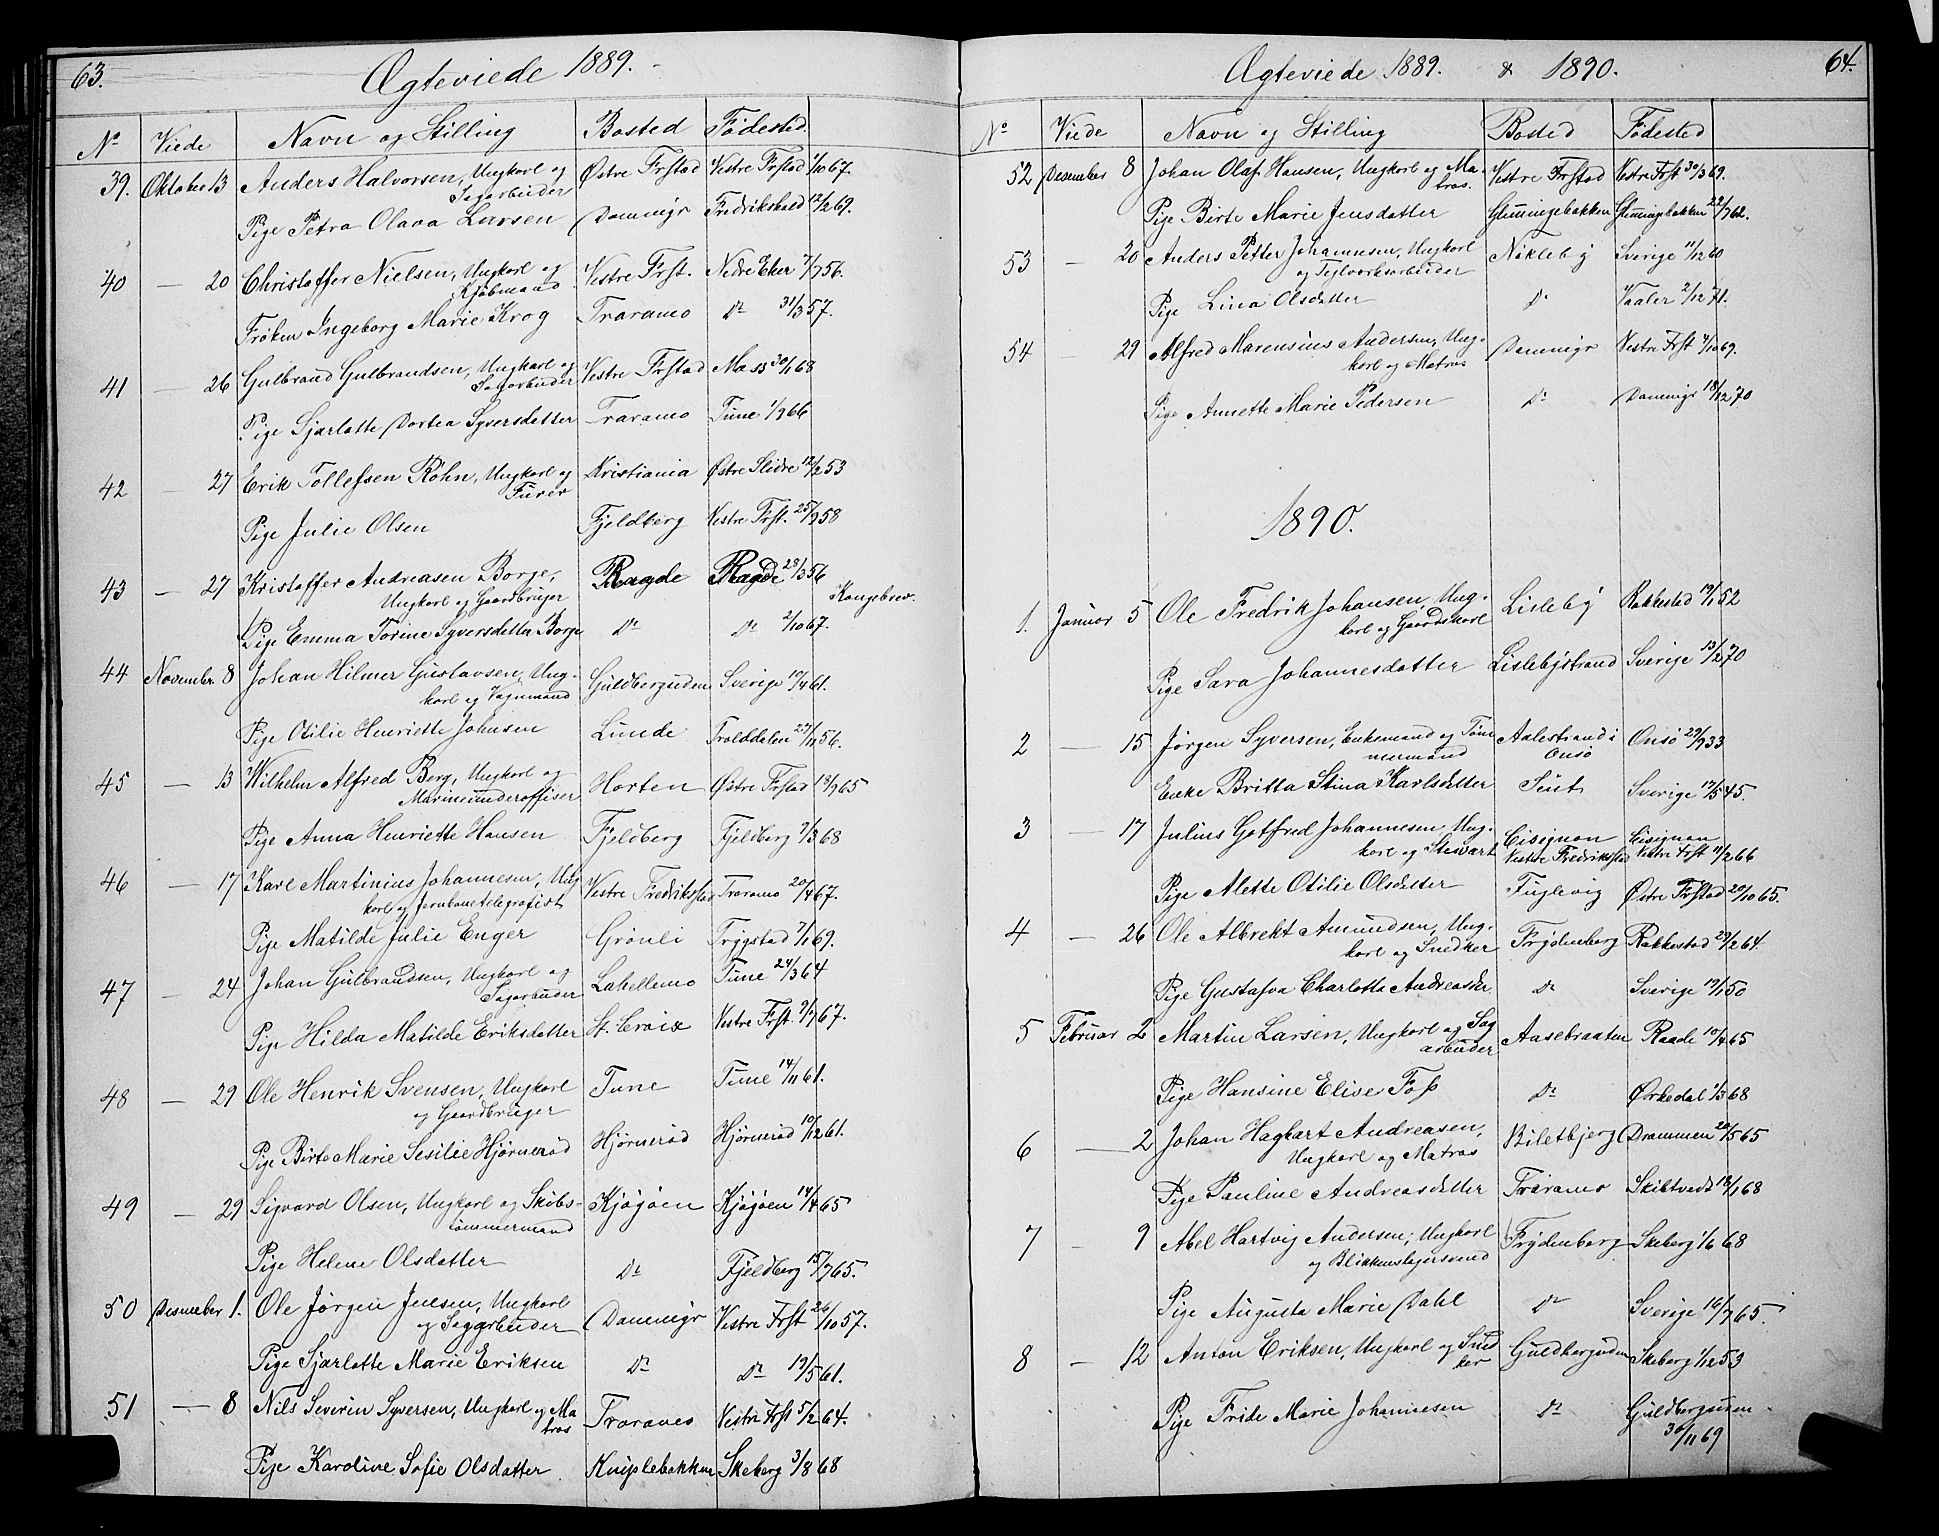 63.
Ægteviede 1889.
No Viede Navn og Stilling Bosted Födested
39. Oktober 13 Anders Halvorsen, Ungkarl og Østre Frstad Vestre Frstad 1/10 67.
Sagarbeider
Pige Petra Olava Larsen Dammigr Fredrikshald 12/2 69.
40 — 20 Christoffer Nielsen, Ungkarl og Vestre Frst. Nedre Eker 7/7 56.
Kjöbmand
Frøken Ingeborg Marie Krog Traramo Do 31/3 57.
41 — 26 Gulbrand Gulbrandsen, Ungkarl og Vestre Frstad Moss 30/1 68
Sagarbeider
Pige Sjarlotte Dortea Syversdatter Traramo Tune 1/9 66
42 — 27 Erik Tollefsen Röhn, Ungkarl og Kristiania Østre Slidre 12/2 53
Furer
Pige Julie Olsen Fjeldberg Vestre Frst. 25/9 58
43 — 27 Kristoffer Andreasen Borge, Raade Raade 28/3 56
Ungkarl og Gaardbruger Kongebrev.
Pige Emma Torine Syversdetta Borge Do Do 2/10 67.
44 November 8 Johan Hilmer Gustavsen, Ung- Guldberguden Sverige 10/4 61.
karl og Vognmand
Pige Otilie Henriette Johnsen Lunde Tralddalen 27/11 56.
45 — 13 Wilhelm Alfred Berg, Ungkarl og Horten Østre Frstad 18/9 65
Marineunderoffiser
Pige Anna Henriette Hansen Fjeldberg Fjeldberg 7/3 68
46 — 17 Karl Martinius Johannesen, Ung Vestre Fredriksstad Traramo 20/4 67.
karl og Jernbanetelegrafist
Pige Matilde Julie Enger Grönli Trygstad 7/1 69.
47 — 24 Johan Gulbrandsen, Ungkarl og Lahellemo Tune 24/3 64
Sagarbeider
Pige Hilda Matilde Eriksdatter St. Croix Vestre Frst. 9/7 67.
48 — 29 Ole Henrik Svensen, Ungkarl Tune Tune 14/11 61.
og Gaardbruger
Pige Birte Marie Sesilie Hjörneröd Hjörneröd Hjörneröd 10/12 61.
49 — 29 Sigvard Olsen, Ungkarl og Skibs- Kjøgöen Kjøgöen 14/4 65
tømmermand
Pige Helene Olsdatter Do Fjeldberg 15/7 65.
50 Desember 1. Ole Jörgen Jensen, Ungkarl Dammigr Vestre Frst 26/10 57.
og Sagarbeider
Pige Sjarlotte Marie Eriksen Do Do 19/5 61.
51 — 8 Nils Severin Syversen, Ungkarl og Ma Traraveo Vestre Frst 5/2 64.
tros
Pige Karoline Sofie Olsdatter Kniplebakken Skeberg 3/8 68
Ægteviede 1889. & 1890.
64.
No Viede Navn og Stilling Bosted Fødested
52 Desember 8 Johan Olaf Hansen, Ungkarl og Ma- Vestre Frstad Vestre Frst 30/3 69.
tros.
Pige Birte Marie Jensdatter Glemmingebakken Glemmingebakken 22/7 62.
53 — 20 Anders Petter Johannesen, Ungkarl Nökleby Sverige 11/12 60
og Teglverksarbeider
Pige Lina Olsdetter Do Vaaler 2/12 71.
54 — 29 Alfred Marensius Andersen, Ung- Dammigr Vestre Frst 4/10 69.
karl og Matros
Pige Annette Marie Pedersen Do Dammigr 18/12 70
1890.
1. Januar 5 Ole Fredrik Johansen, Ung- Lisleby Rakkestad 19/1 52
karl og Gaardskarl
Pige Sara Johannesdatter Lislebystrand Sverige 13/2 70
2 — 15 Jörgen Syversen, Enkemand og Töm Aalestrand i Onsö 29/9 33
mermand Onsö
Enke Britta Stina Karlsdetter Seut Sverige 17/5 45.
3 — 17 Julius Gotfred Johannesen, Ung- Cisignon Cisignon
karl og Stewart Vestre Fredriksstad Vestre Frst 11/2 66
Pige Alette Otilie Olsdetter Fuglevig Østre Frstad 20/10 65.
4 — 26 Ole Albrekt Amundsen, Ung- Frydenberg Rakkestad 29/2 64.
karl og Snedker
Pige Gustafva Charlotta Andreasdr. Do Sverige 19/1 50
5 Februar 2 Martin Larsen, Ungkarl og Sag Aasebraaten Raade 10/4 65
arbeider
Pige Hansine Elise Foss Do Ørkedal 1/3 68
6 — 2 Johan Hagbart Andreasen, Biletbjerg Drammen 20/5 65
Ungkarl og Matros
Pige Pauline Andreasdetter Traramo Skibtvedt 18/1 68
7 — 9 Abel Hartvig Andersen, Ungkarl Frydenberg Skeberg 1/6 68
og Blikkenslagersvend
Pige Augusta Marie Dahl Do Sverige 16/7 65.
8 — 12 Anton Eriksen, Ungkarl og Sned Guldberguden Skeberg 1/12 53
ker
Pige Fride Marie Johannesen Do Guldberguden
30/11 69